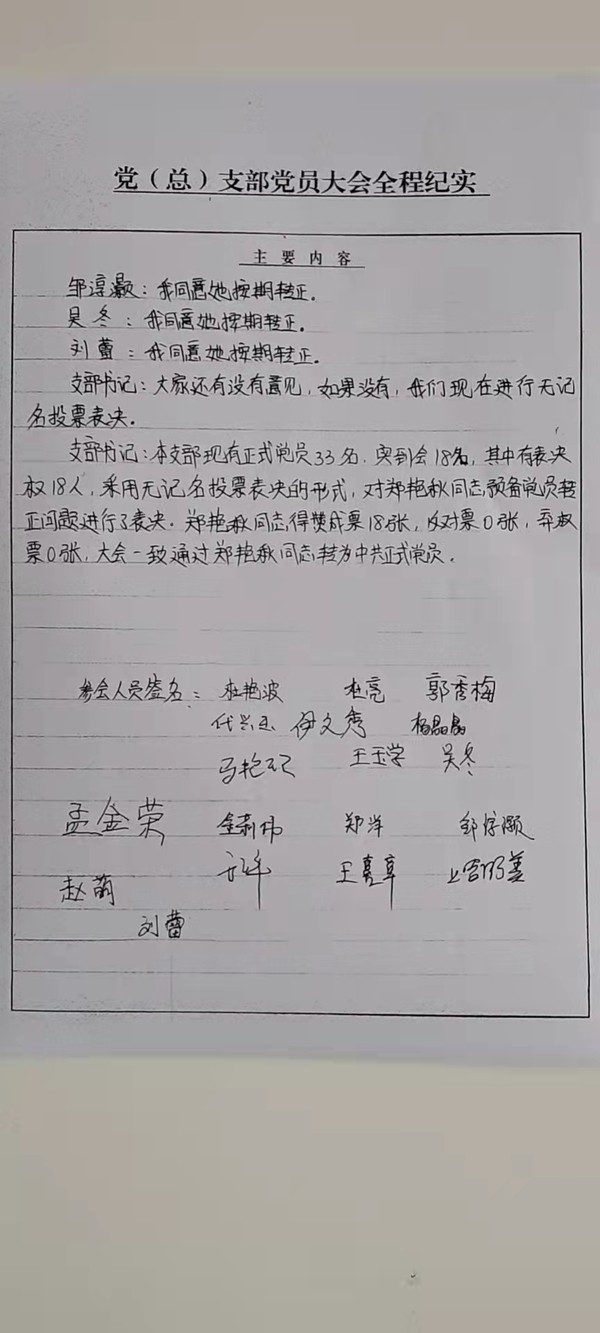 党（总）支部党员大会全程纪实
主要内容
邹淳灏：我同意她按期转正。
吴冬：我同意她按期转正。
刘蕾：我同意她按期转正。
支部书记：大家还有没有意见，如果没有，我们现在进行无记
名投票表决。
支部书记：本支部现有正式党员33名，实到会18名，其中有表决
权18人，采用无记名投票表决的形式，对郑艳秋同志预备党员转
正问题进行了表决。郑艳秋同志，得赞成票18张，反对票0张，弃权
票0张，大会一致通过郑艳秋同志转为中共正式党员。
参会人员签名：杜艳波 杜亮 郭秀梅
伊文秀 杨晶晶
王玉学 吴冬
孟金荣 郑洋 邹淳灏
赵萌
刘蕾